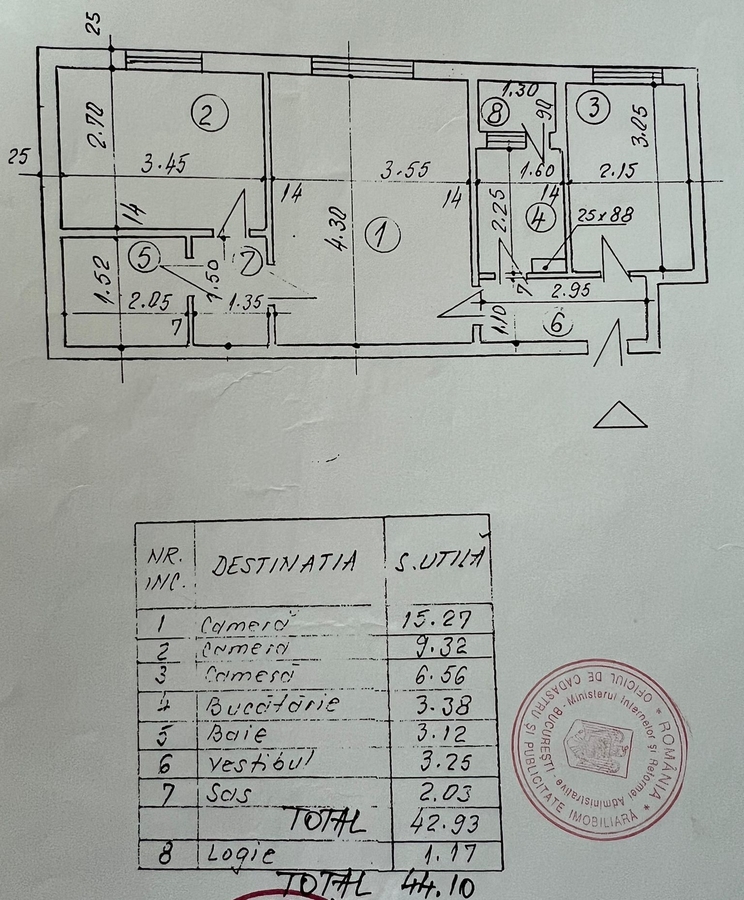 25
2
1.30
8
90
3
2.70
3.25
25
3.45
3.55
1.60
2.15
14
14
14
14
4.30
1
2.25
4
25x88
5
7
1.52
1.50
2.05
1.35
7
7
2.95
1.10
6
NR. INC. DESTINATIA S.UTILĂ
1 Cameră 15.27
2 Camera 9.32
3 Cameră 6.56
4 Bucătărie 3.38
5 Baie 3.12
6 Vestibul 3.25
7 Sas 2.03
TOTAL 42.93
8 Logie 1.17
TOTAL 44.10
* ROMÂNIA * OFICIUL DE CADASTRU ȘI PUBLICITATE IMOBILIARĂ
Ministerul Internelor și Reformei Administrative - BUCUREȘTI -